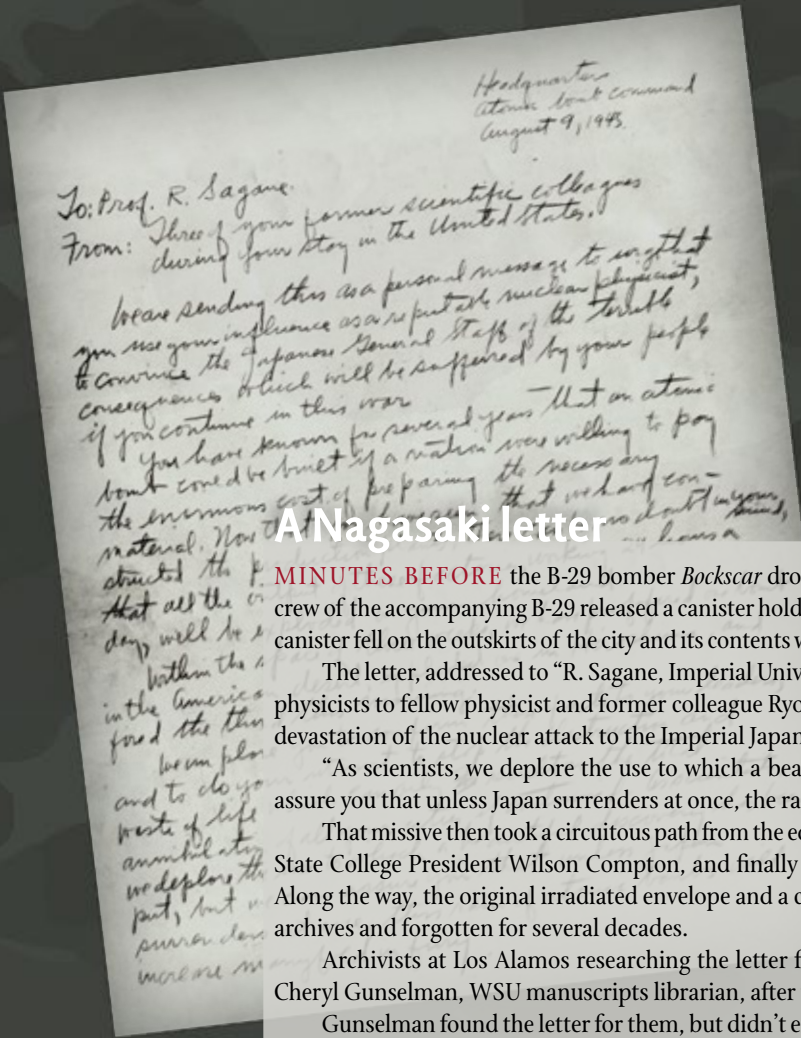 Headquarters
atomic bomb command
August 9, 1945.
To: Prof. R. Sagane.
From: Three of your former scientific colleagues
during your stay in the United States.
We are sending this as a personal message to urge that
you use your influence as a reputable nuclear physicist,
to convince the Japanese General Staff of the terrible
consequences which will be suffered by your people
if you continue in this war
You have known for several years that an atomic
bomb could be built if a nation were willing to pay
the enormous cost of preparing the necessary
material. Now that we have con-
structed the no doubt in your mind,
that all the hours a
day, will be
Within the
in the America
fired the
We
and to do yo
waste of life
annihilatio
we deplore th
put, but
surrenders
increase m
A Nagasaki letter
MINUTES BEFORE the B-29 bomber Bockscar dro
crew of the accompanying B-29 released a canister hold
canister fell on the outskirts of the city and its contents w
The letter, addressed to “R. Sagane, Imperial Univ
physicists to fellow physicist and former colleague Ryo
devastation of the nuclear attack to the Imperial Japan
“As scientists, we deplore the use to which a bea
assure you that unless Japan surrenders at once, the ra
That missive then took a circuitous path from the ed
State College President Wilson Compton, and finally
Along the way, the original irradiated envelope and a c
archives and forgotten for several decades.
Archivists at Los Alamos researching the letter f
Cheryl Gunselman, WSU manuscripts librarian, after
Gunselman found the letter for them, but didn’t e